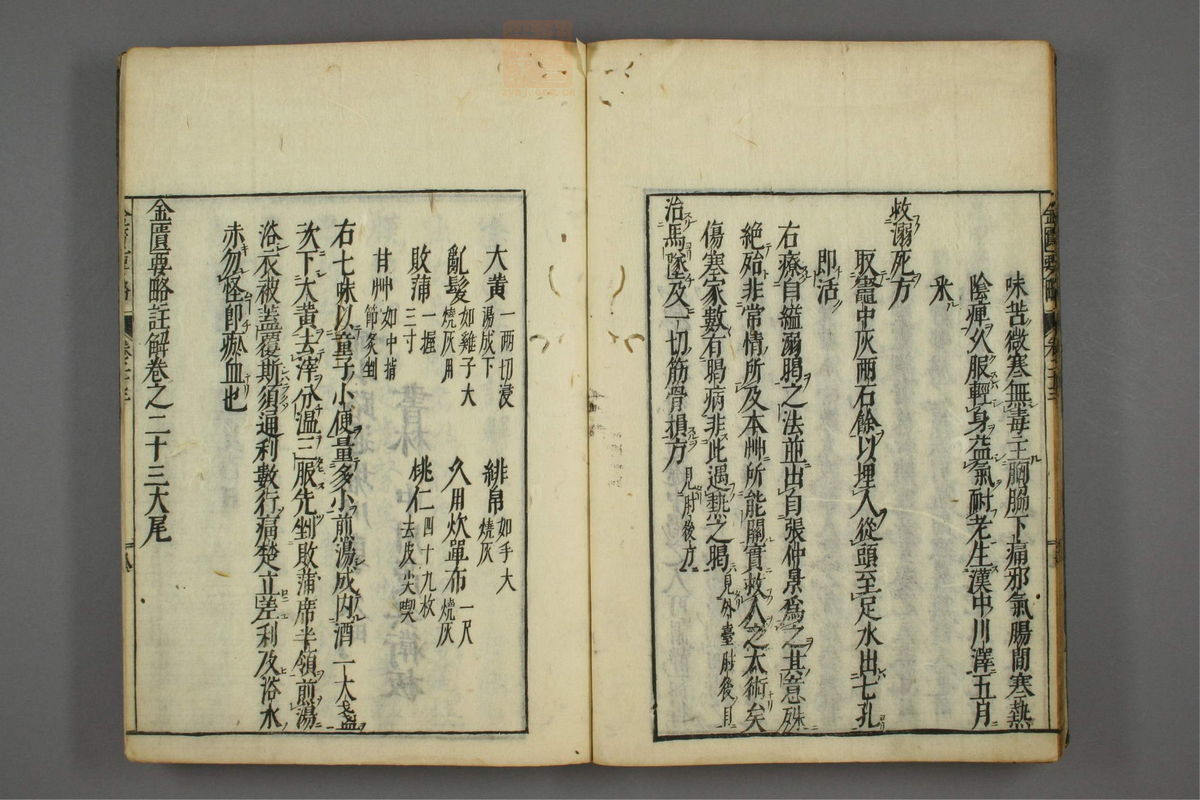 味苦微寒無毒主胸脇下痛邪氣腸間寒熱
陰痺久服輕身益氣耐老生漢中川澤五月
采
救溺死方
取竈中灰兩石餘以埋人從頭至足水出七孔
即活
右療自縊溺暍之法並出自張仲景爲之其意殊
絶殆非常情所及本艸所能關實救人之大術矣
傷寒家數有暍病非此遇熱之暍 見外臺肘後目
治馬墜及一切筋骨損方 見肘後方
大黄 一兩切浸湯成下 緋帛 如手大燒灰
亂髮 如雞子大燒灰用 久用炊單布 一尺燒灰
敗蒲 一握三寸 桃仁 四十九枚去皮尖喫
甘艸 如中指節炙剉
右七味以童子小便量多小煎湯成内酒一大盞
次下大黄去滓分温三服先剉敗蒲席半領煎湯
浴衣被蓋覆斯須通利數行痛楚立差利及浴水
赤勿怪即瘀血也
金匱要略註解卷之二十三大尾